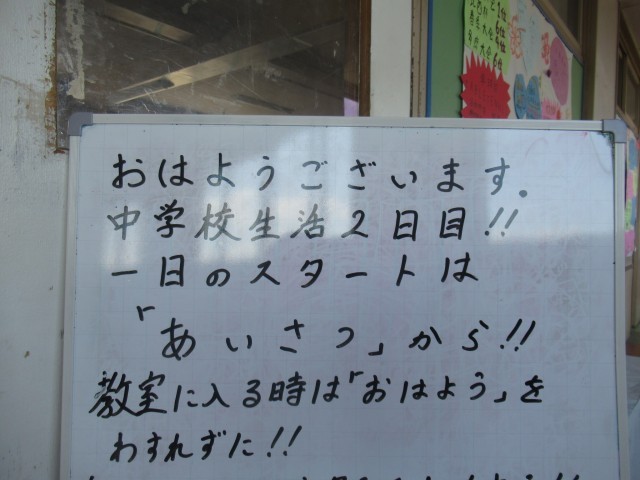 おはようございます。
中学校生活2日目!!
一日のスタートは
「あいさつ」から!!
教室に入る時は「おはよう」を
わすれずに!!